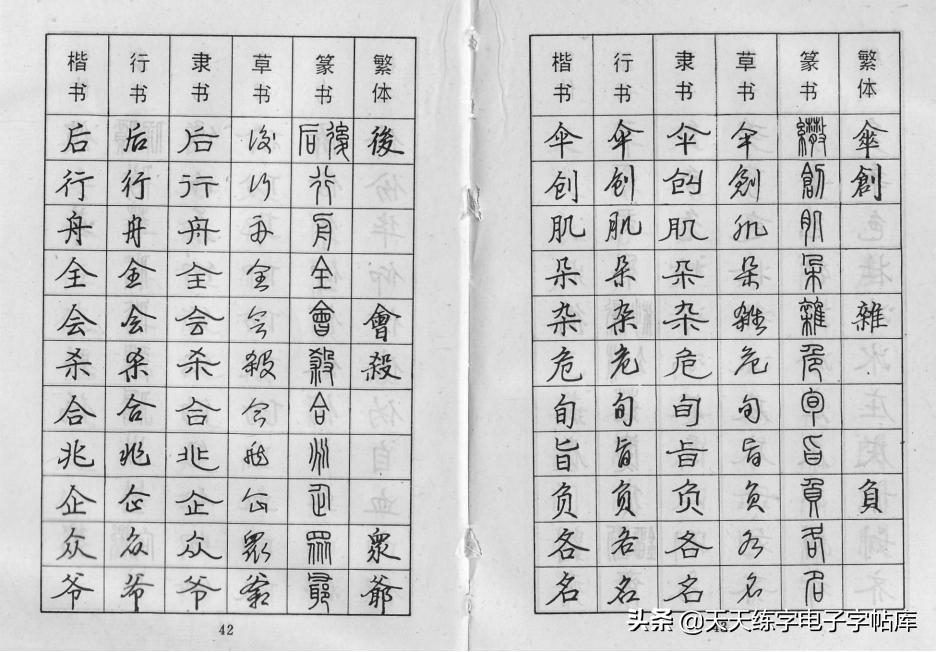 楷书 行书 隶书 草书 篆书 繁体
后 后 后 後 后後 後
行 行 行 行 行
舟 舟 舟 舟 舟
全 全 全 全 全
会 会 会 会 會 會
杀 杀 杀 殺 殺 殺
合 合 合 合 合
兆 兆 兆 兆 兆
企 企 企 企 企
众 众 众 眾 眾 眾
爷 爷 爷 爺 爺 爺
42
楷书 行书 隶书 草书 篆书 繁体
伞 伞 伞 伞 繖 傘
创 创 创 創 創 創
肌 肌 肌 肌 肌
朵 朵 朵 朵 朵
杂 杂 杂 雜 雜 雜
危 危 危 危 危
旬 旬 旬 旬 旬
旨 旨 旨 旨 旨
负 负 负 负 負 負
各 各 各 各 各
名 名 名 名 名
43
头条 @天天练字电子字帖库